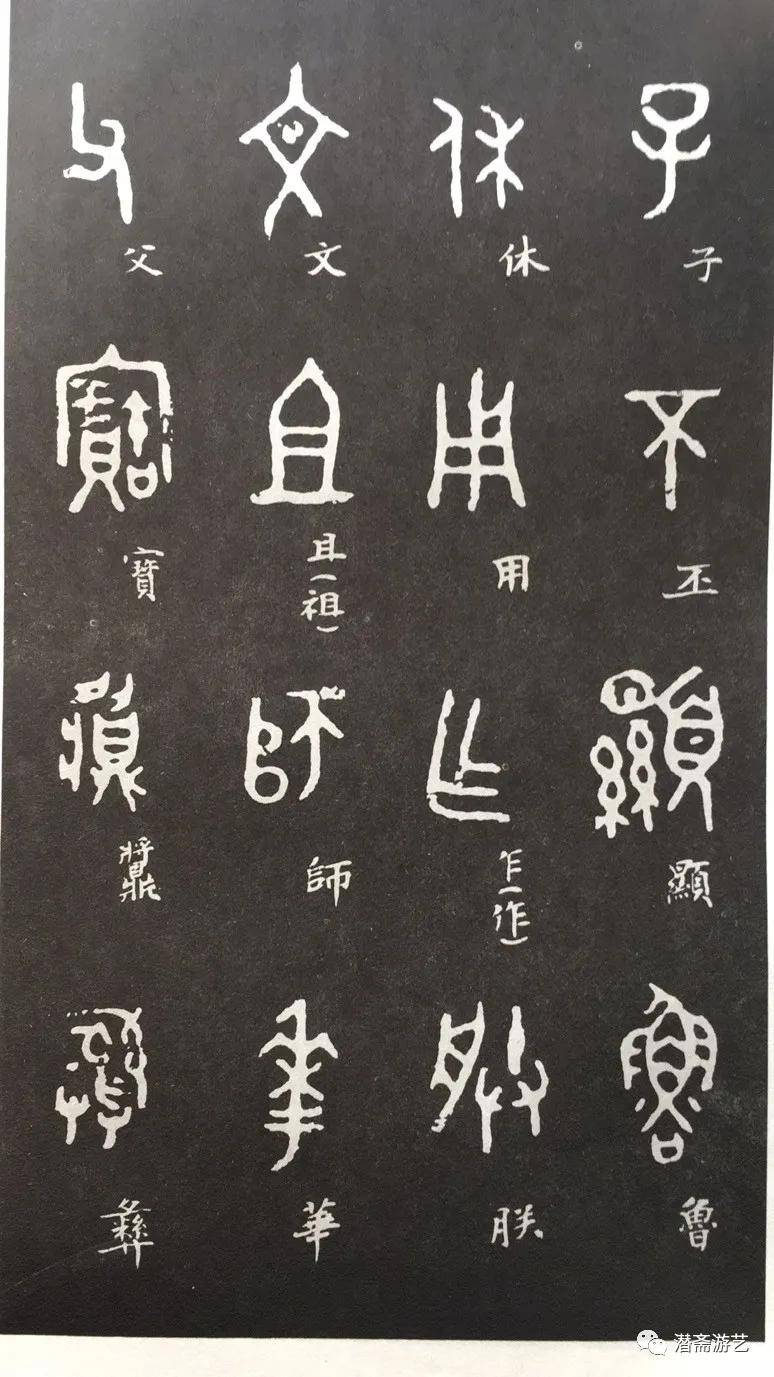 子丕顯魯
休用乍(作)朕
文且(祖)師華
父寶𩱧彝
潜斋游艺